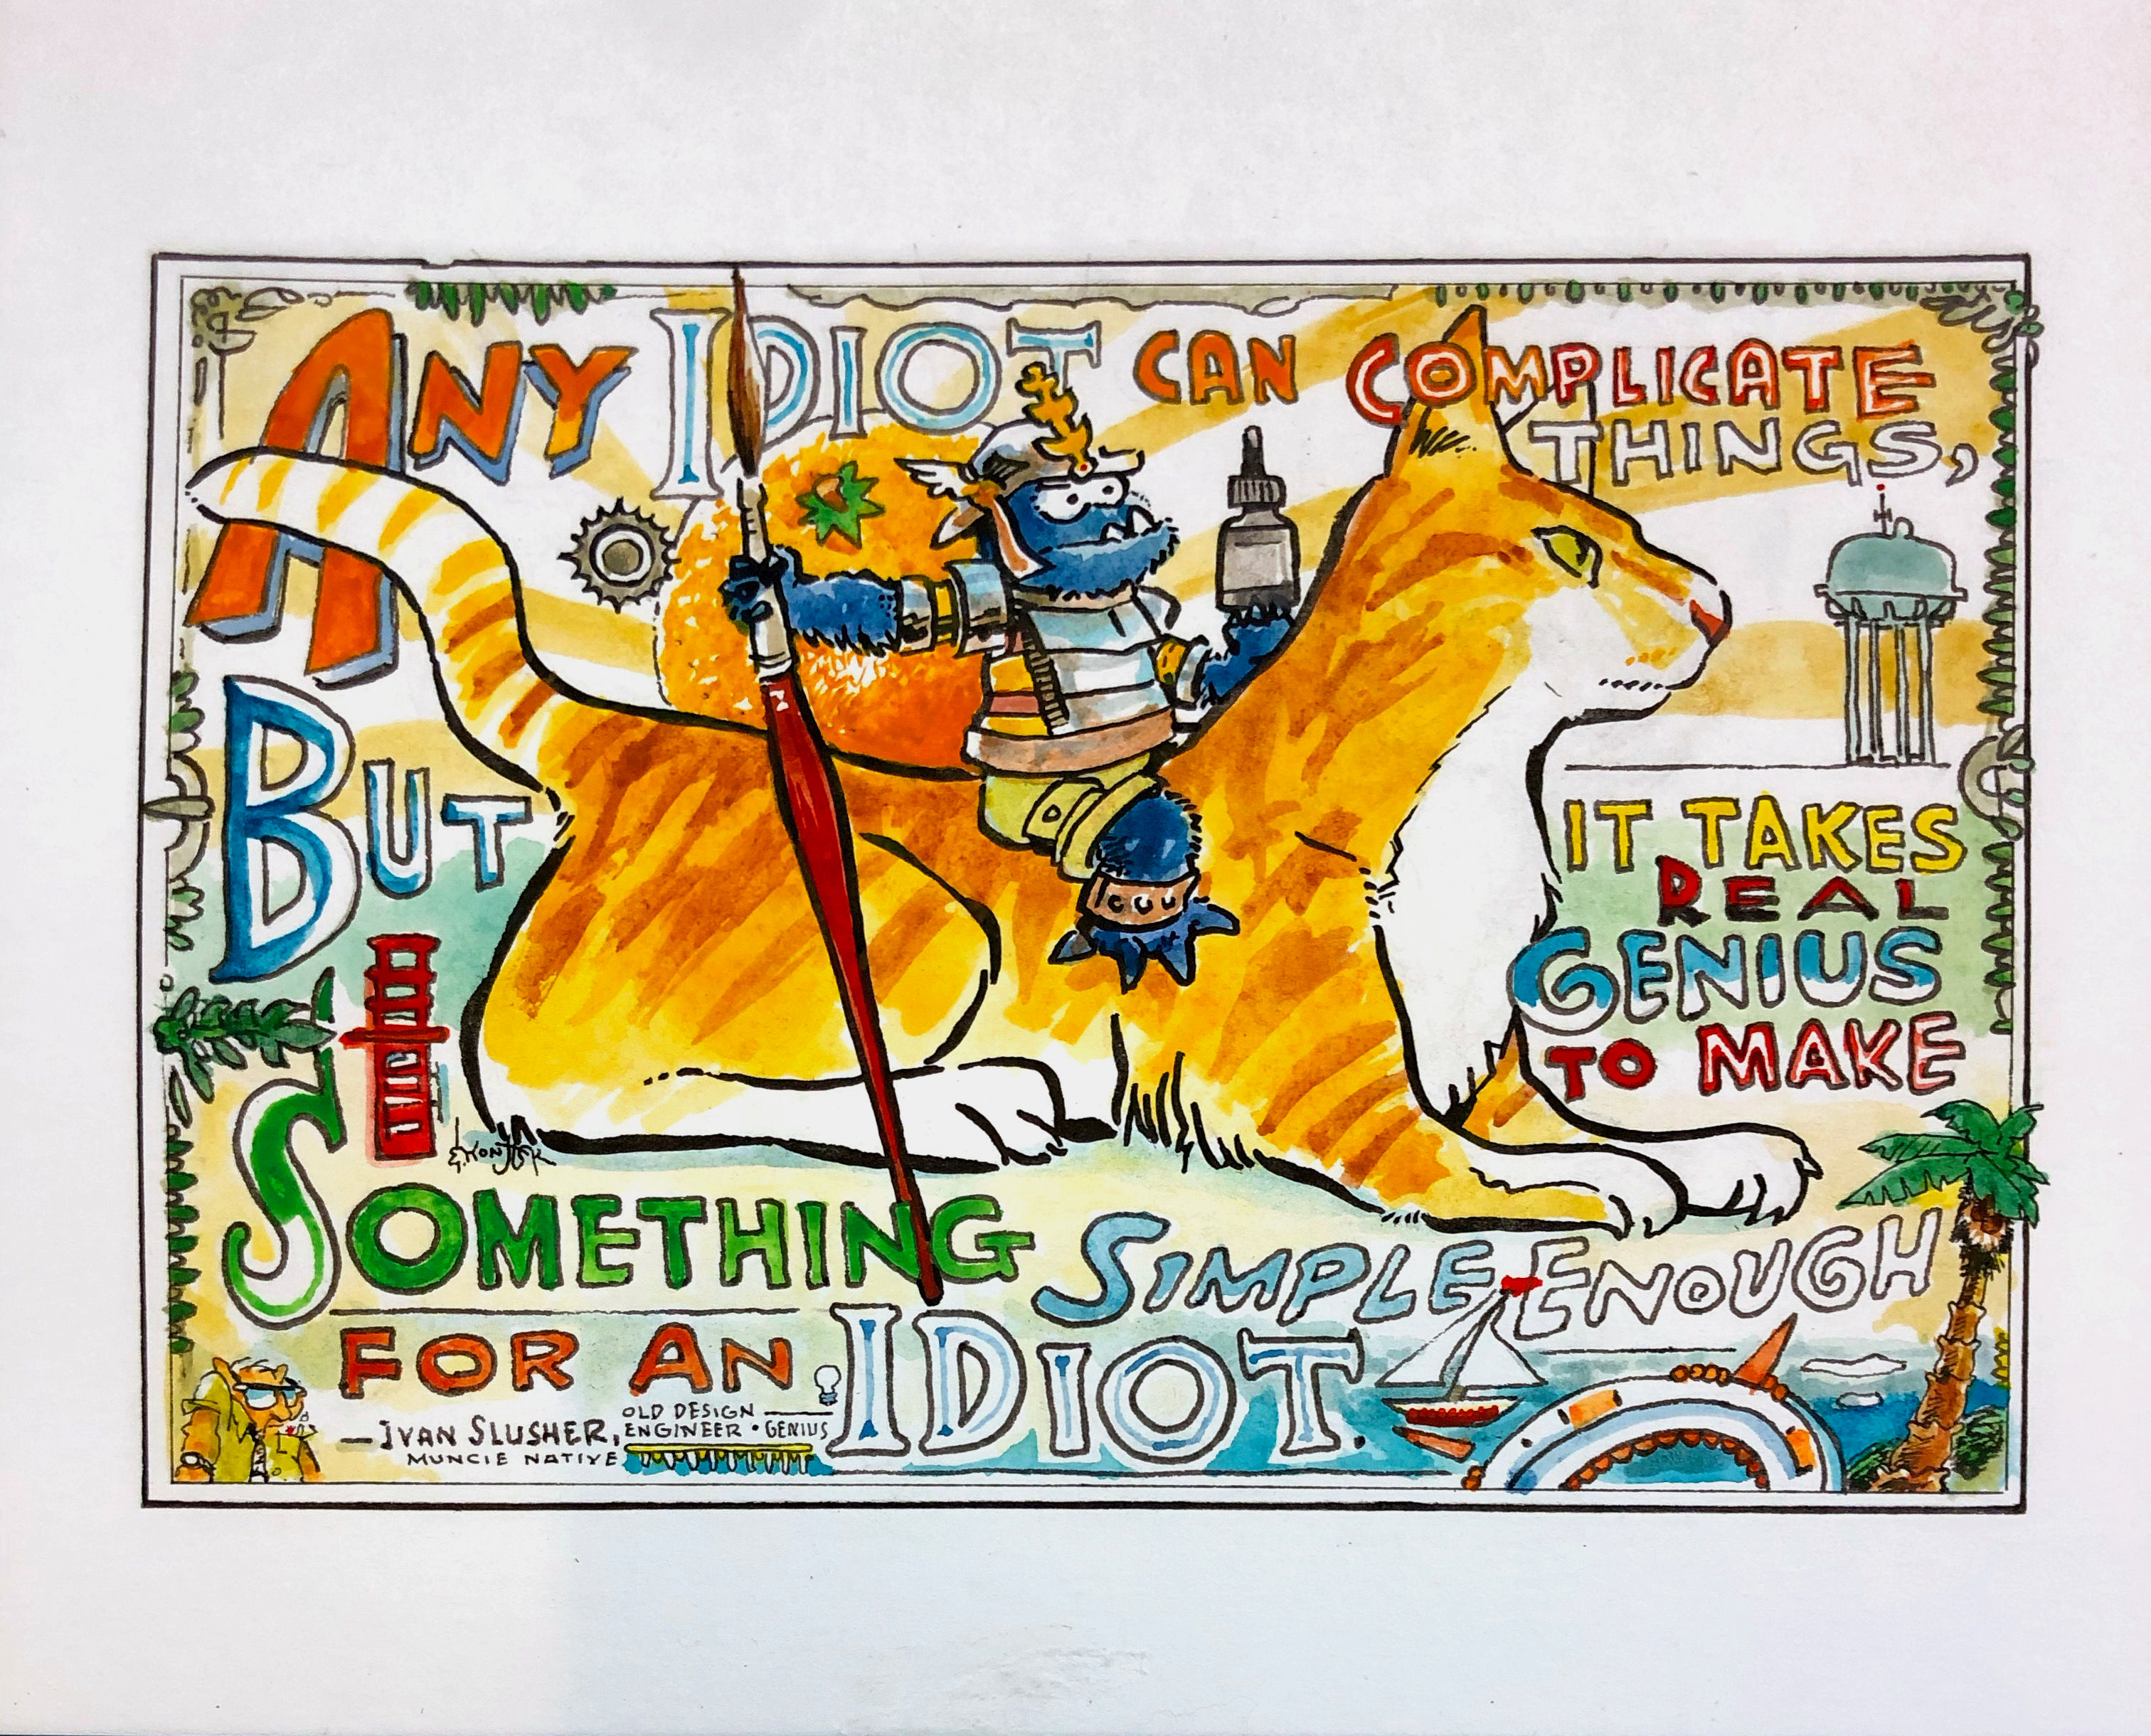 ANY IDIOT CAN COMPLICATE
THINGS,
BUT
IT TAKES
REAL
GENIUS
TO MAKE
SOMETHING SIMPLE ENOUGH
FOR AN IDIOT.
—IVAN SLUSHER, OLD DESIGN
ENGINEER • GENIUS
MUNCIE NATIVE